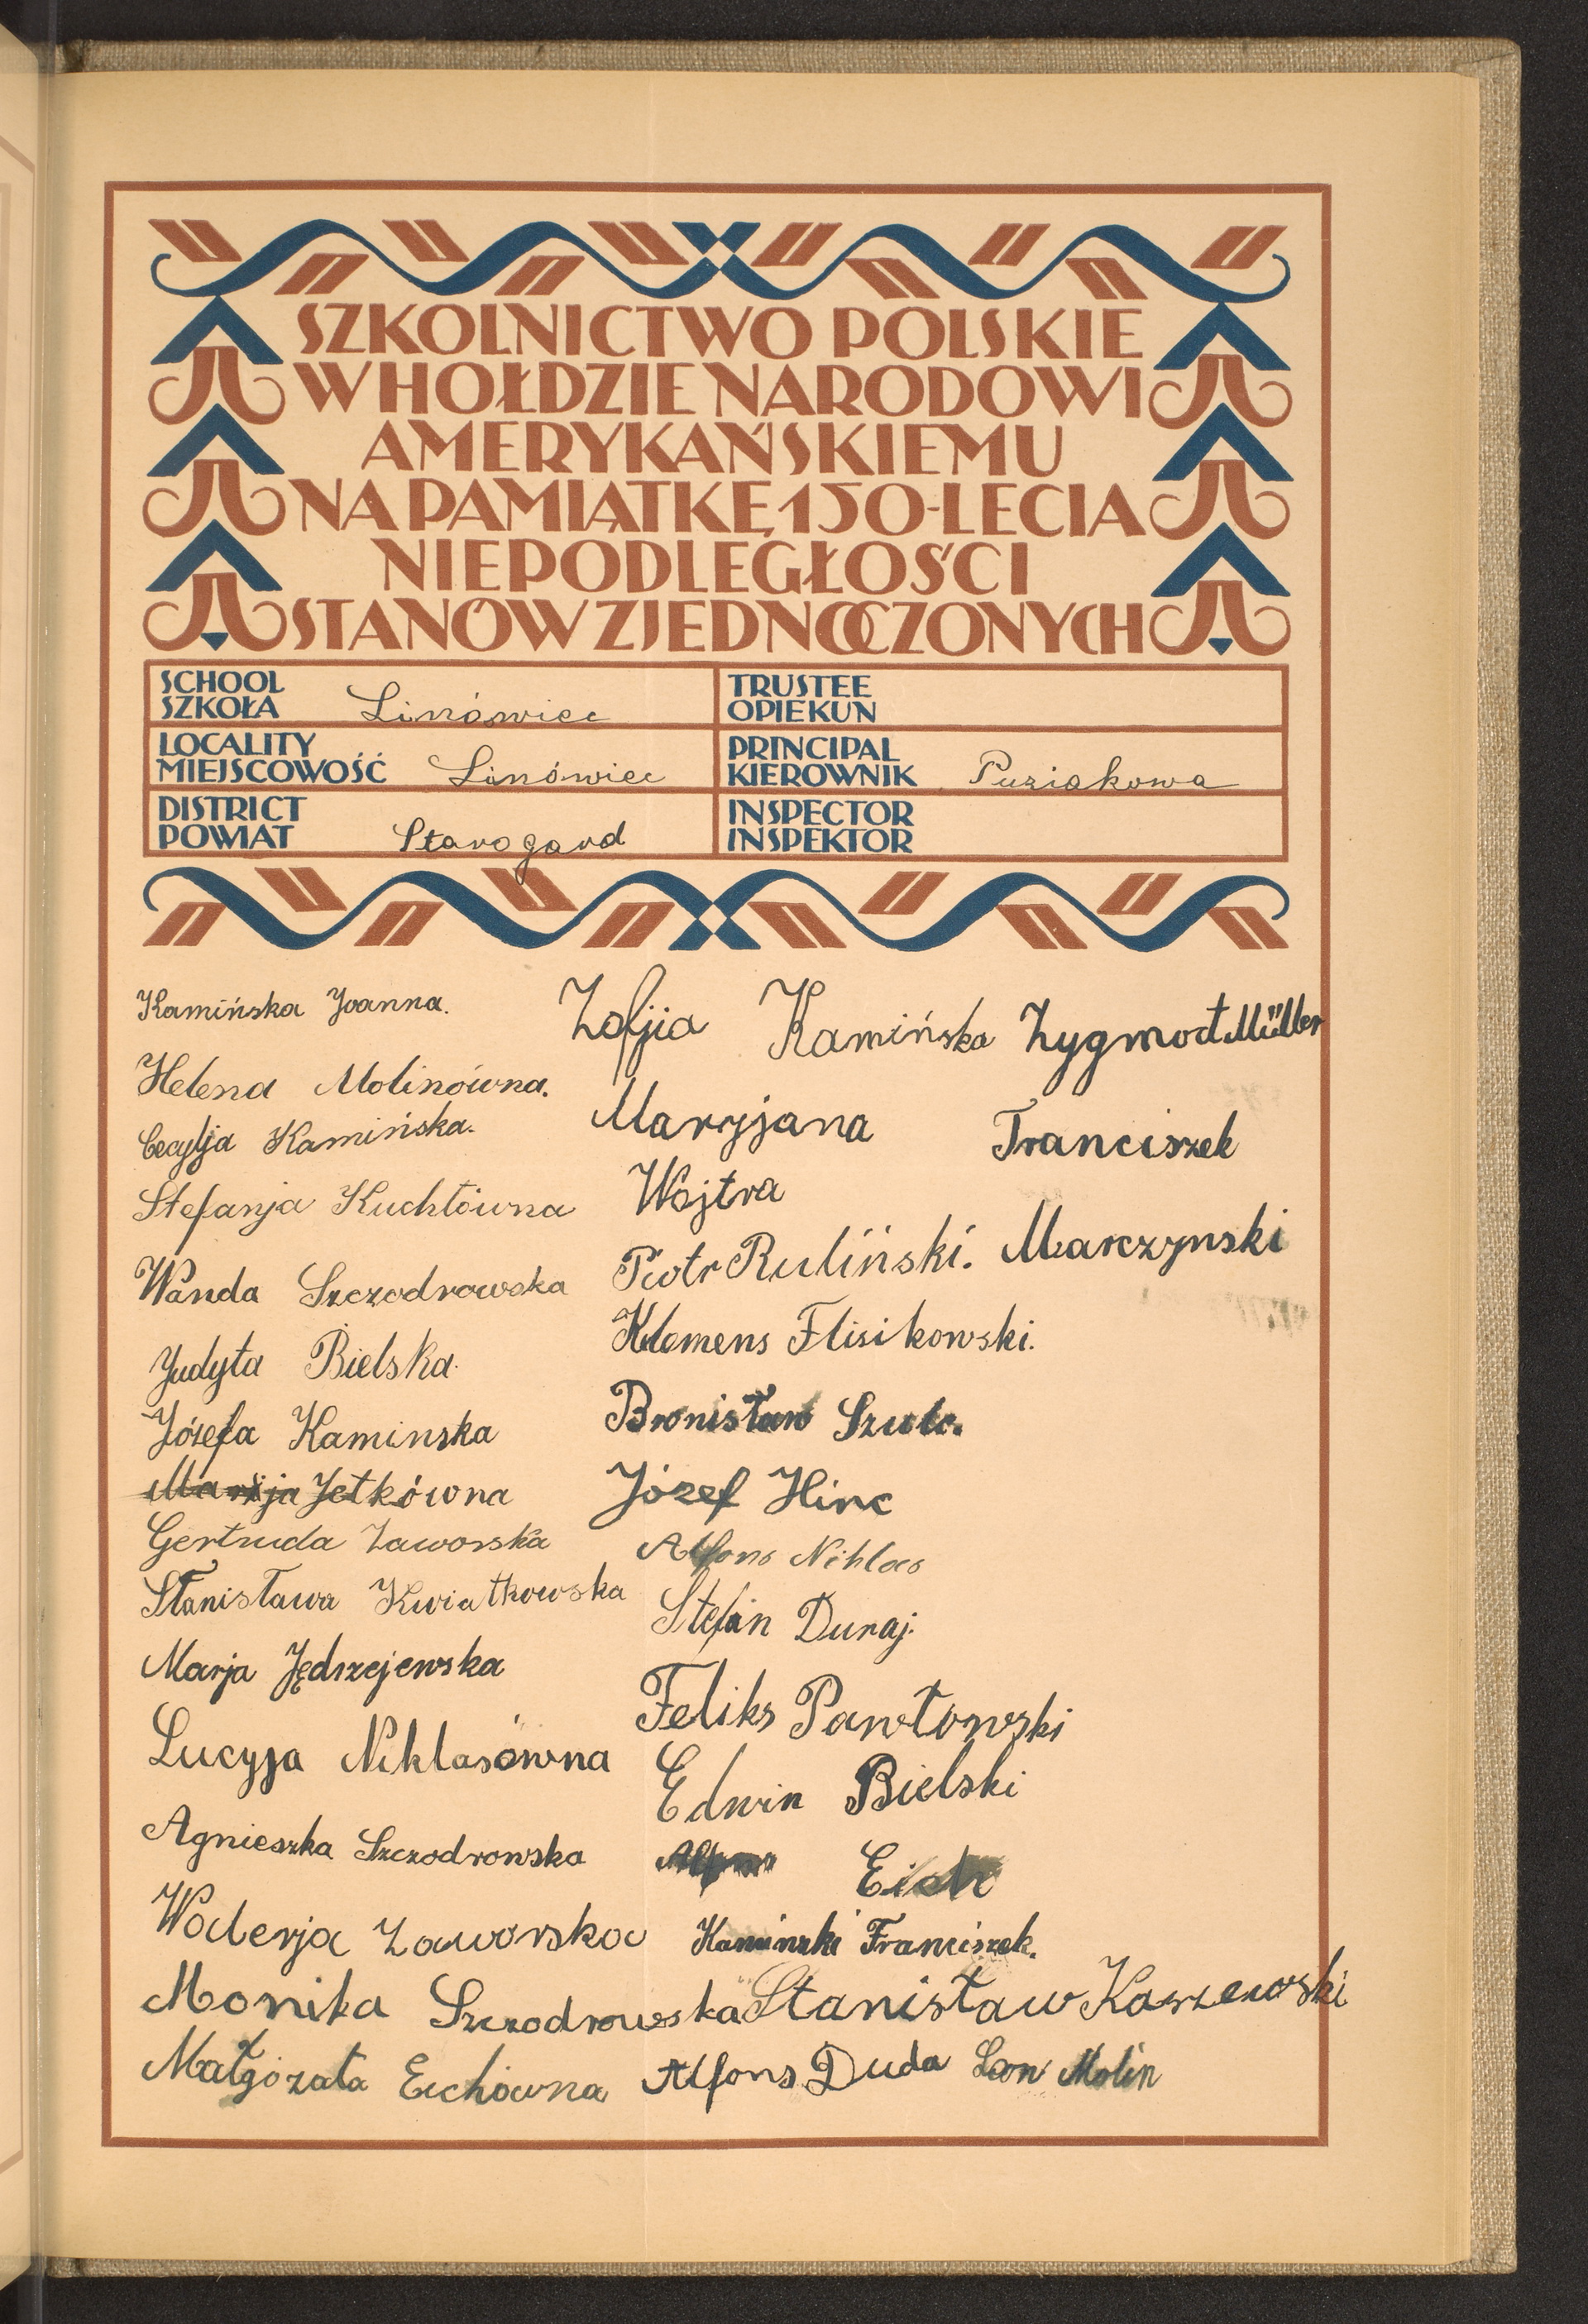 SZKOLNICTWO POLSKIE
W HOŁDZIE NARODOWI
AMERYKAŃSKIEMU
NA PAMIĄTKĘ 150-LECIA
NIEPODLEGŁOŚCI
STANÓW ZJEDNOCZONYCH
SCHOOL
SZKOŁA Linówiec
TRUSTEE
OPIEKUN
LOCALITY
MIEJSCOWOŚĆ Linówiec
PRINCIPAL
KIEROWNIK Puziakowa
DISTRICT
POWIAT Starogard
INSPECTOR
INSPEKTOR
Kamińska Joanna.
Helena Molinówna.
Cecylja Kamińska.
Stefanja Kuchtówna
Wanda Szczodrowska
Judyta Bielska.
Józefa Kaminska
Marija Jetkówna
Gertruda Zaworska
Stanisława Kwiatkowska
Marja Jędrzejewska
Lucyja Niklasówna
Agnieszka Szczodrowska
Walerja Zaworska
Monika Szczodrowska
Małgórzata Eichówna
Zofjia Kamińska
Maryjana
Wojtra
Piotr Ruliński.
Klemens Flisikowski.
Bronisław Szulc.
Józef Hinc
Alfons Niklas
Stefan Duraj.
Feliks Pawłowski
Edwin Bielski
Alfons Eich
Kaminski Franciszek.
Stanisław Kaszewski
Alfons Duda Leon Molin
Zygmont Müller
Franciszek
Marczynski